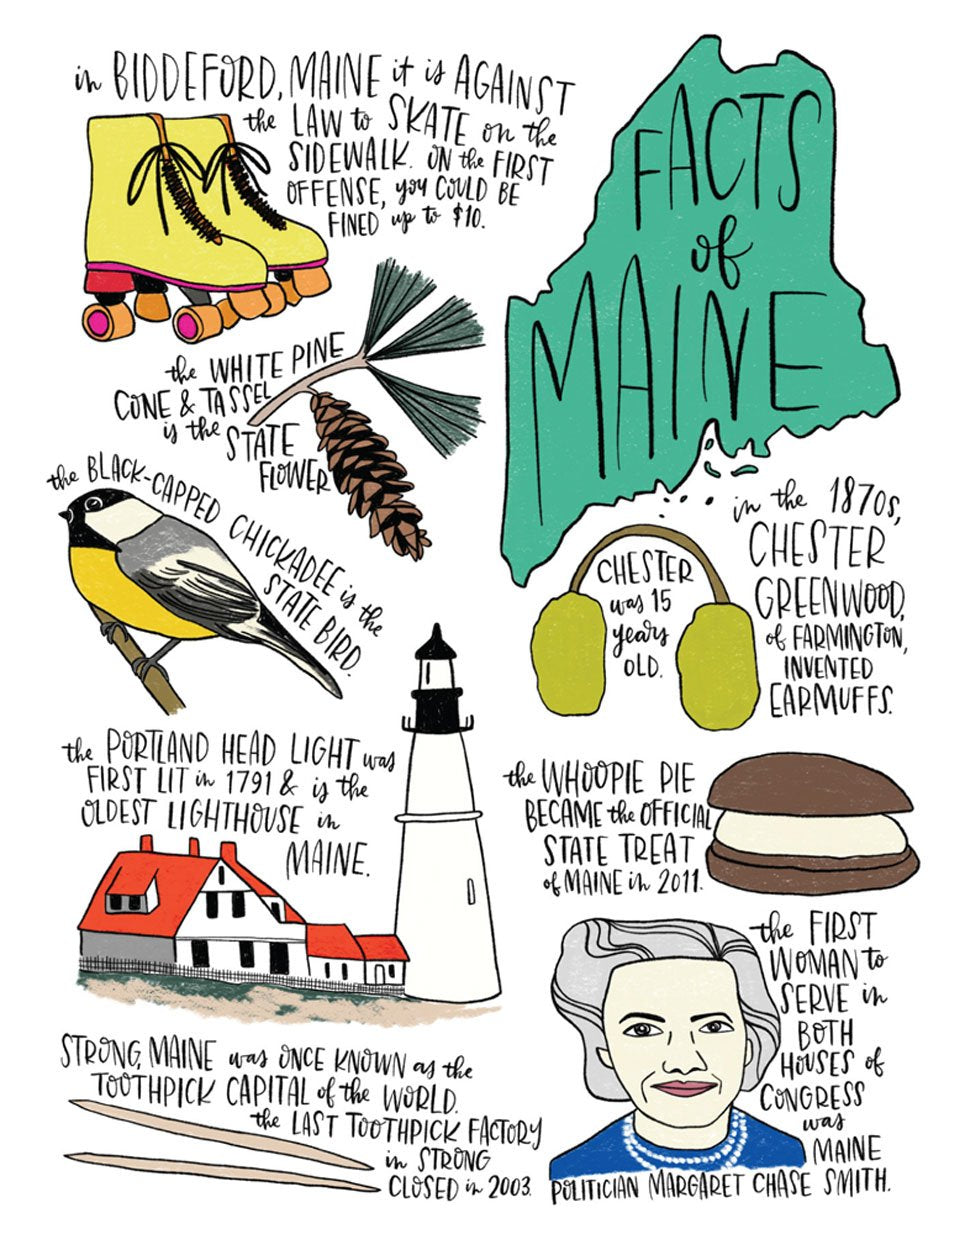 in BIDDEFORD, MAINE it is AGAINST
the LAW to SKATE on the
SIDEWALK. ON the FIRST
OFFENSE, you COULD BE
FINED up to $10.
FACTS
of
MAINE
the WHITE PINE
CONE & TASSEL
is the STATE
FLOWER
the BLACK-CAPPED CHICKADEE is the
STATE BIRD.
in the 1870s,
CHESTER
GREENWOOD,
of FARMINGTON,
INVENTED
EARMUFFS.
CHESTER
was 15
years
OLD.
the PORTLAND HEAD LIGHT was
FIRST LIT in 1791 & is the
OLDEST LIGHTHOUSE in
MAINE.
the WHOOPIE PIE
BECAME the OFFICIAL
STATE TREAT
of MAINE in 2011.
the FIRST
WOMAN to
SERVE in
BOTH
HOUSES of
CONGRESS
was
MAINE
POLITICIAN MARGARET CHASE SMITH.
STRONG, MAINE was ONCE KNOWN as the
TOOTHPICK CAPITAL of the WORLD.
the LAST TOOTHPICK FACTORY
in STRONG
CLOSED in 2003.